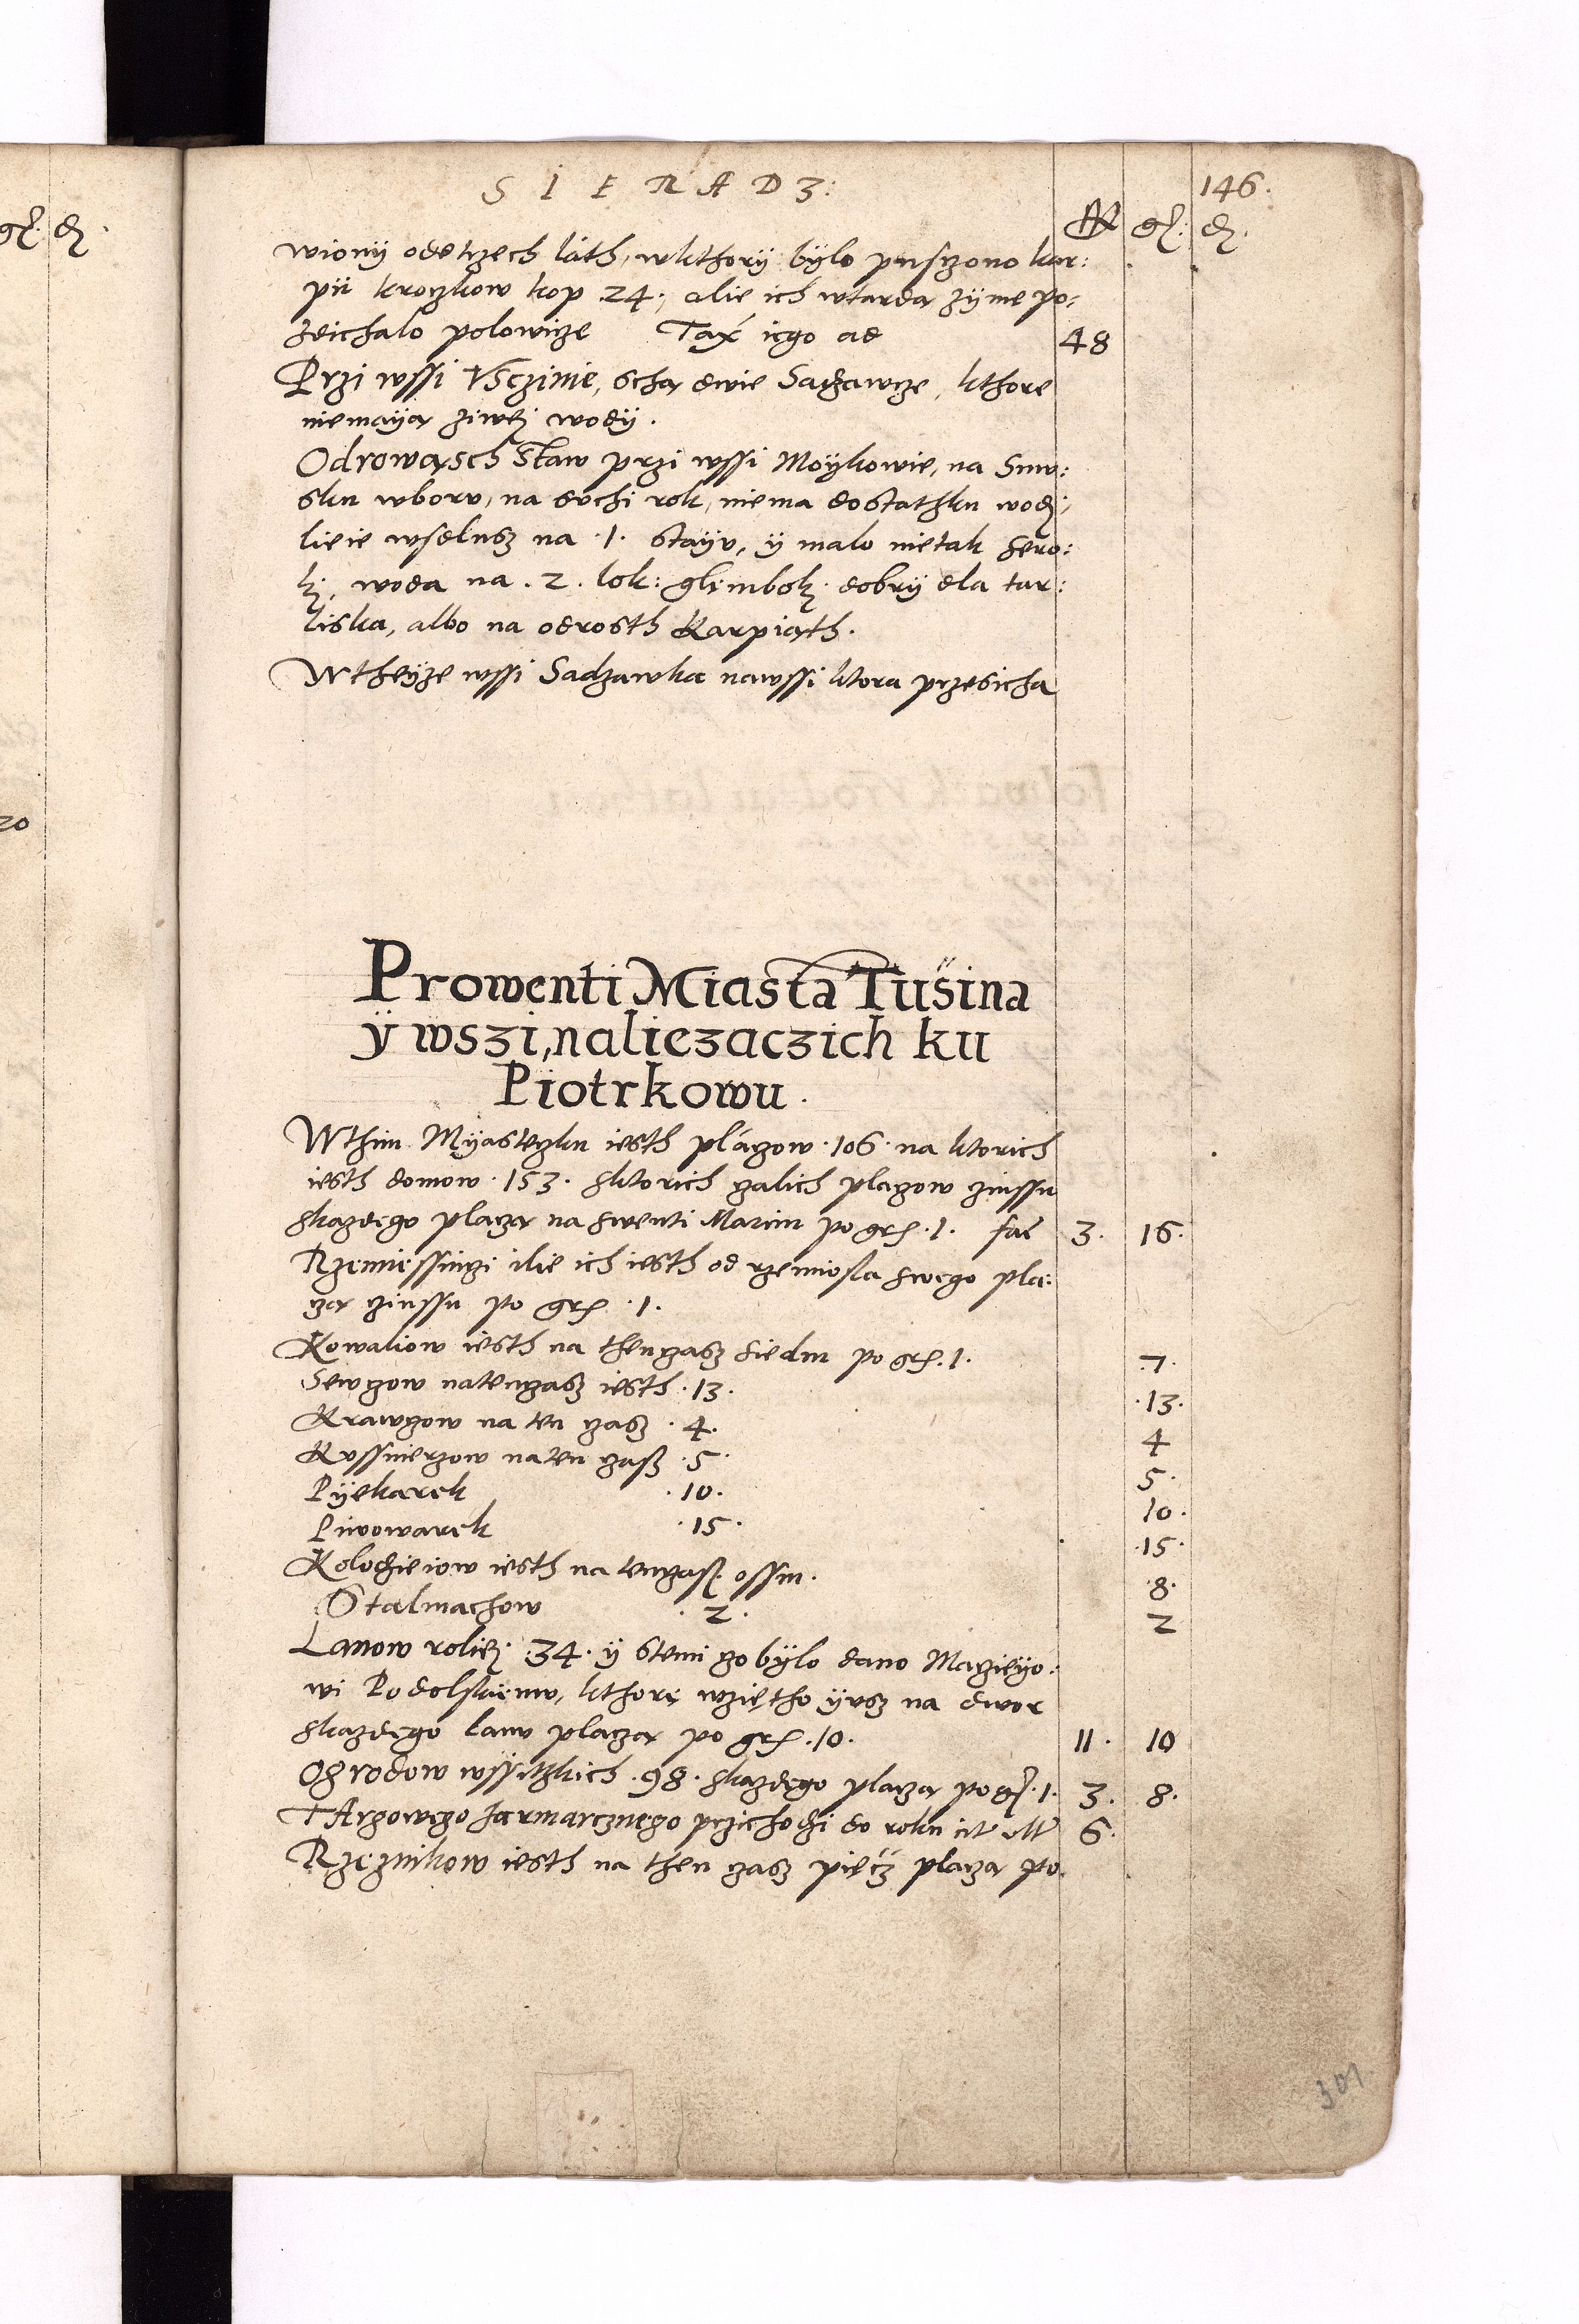 SIERADZ:
146.
gr. d.
wiony odetrzech láth, wkthorÿ bÿlo pusczono kar:
pii kroczkow kop 24. alie ich wtarda zÿme po:
zdichalo polowicze Tax iego ad 48
Przi wssi Vsczinie, scha dwie Sadzawcze, kthore
niemaÿa ziwei wodÿ.
Odrowasch Staw przi wssi Moÿkowie, na Suw:
sku wboru, na suchi rok, niema dostathku wodi,
lieie wselusz na .1. staÿu, ÿ malo nietak sero:
ki, woda na .2. lok: glimboki dobrÿ dla tar:
liska, albo na odrosth Karpiath.
Wtheÿze wssi Sadzawka nawssi ktora przesicha
20
Prowenti Miasta Tusina
ÿ wszi, naliezaczich ku
Piotrkowu.
Wthim Mÿastezku iesth placzow .106. na ktorich
iesth domow .153. sktorich czalich placzow czinssu
skazdego placza na swenti Marcin po grs .1. fac 3. 16.
Rzemiessinczi ilie ich iesth od rzemiosla swego pla:
cza czinssu po grs .1.
Kowaliow iesth na thenczasz siedm po grs .1. 7.
Sewczow natenczasz iesth .13. .13.
Krawczow na ten czasz .4. 4
Kussnierzow naten czasz .5. 5.
Pÿekarek .10. 10.
Piwowarek .15. .15.
Kolodzieiow iesth na tenczasz ossm. .8.
Stalmachow .2. 2
Lanow roliei .34. ÿ stemi czo bÿlo dano Macziëÿo:
wi Podolskiemu, kthore wzietho ÿusz na dwor
skazdego lanu placza po grs .10. 11. 10
Ogrodow wssitzkich .98. skazdego placza po gr .1. 3. 8.
TArgowego Jarmarcznego przichodzi do roku 6.
Rzeznikow iesth na then czasz piećz placza po.
301